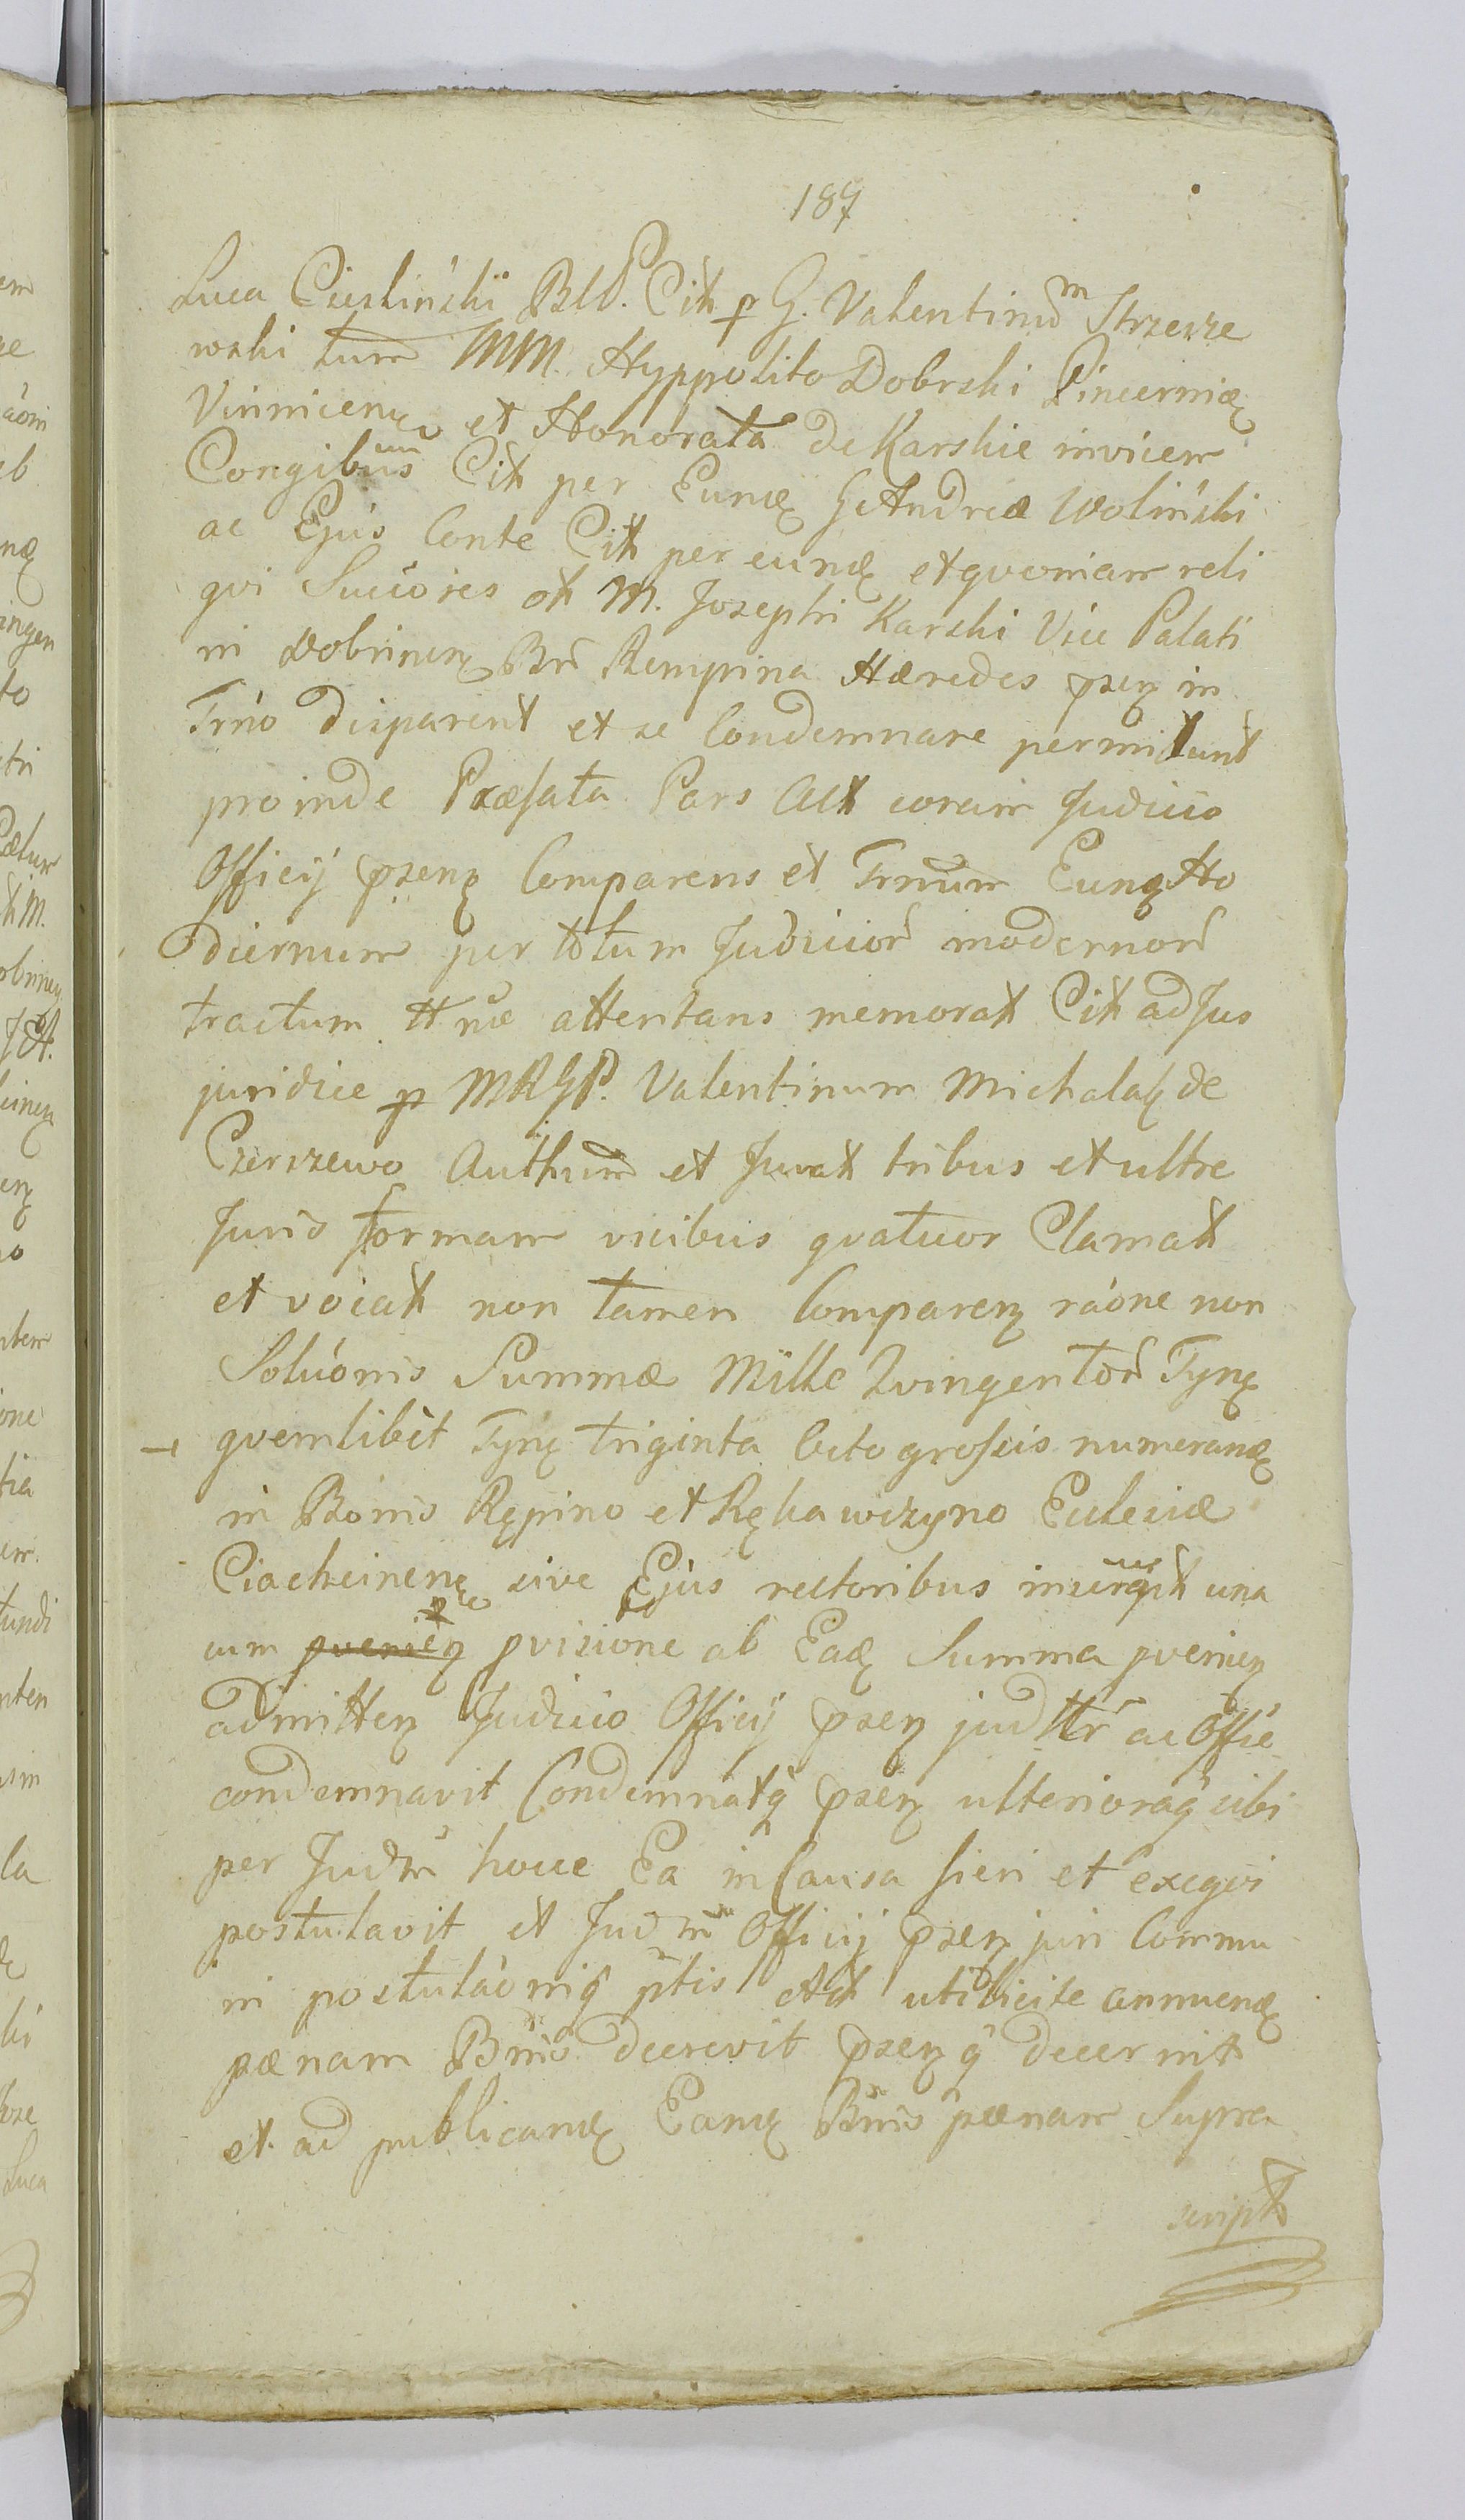 187
Luca Cieslinski BllP. Citt p G. Valentinum Strzesze
wski tum MM. Hyppolito Dobrski Pincerniæ
Vinnicen et Honorata de Karskie invicem
Congibus Citt per Eund G Andreæ Woliński
ac Ejus Conte Citt per eund et qvoniam reli
qvi Succores ott M. Josephi Karski Vice Palati
ni Dobrinen Brr Rempina Hæredes psen in
Trno disparent et se Condemnare permitunt
proinde Præfata Pars Actt coram Judicio
Officij psenz Comparens et Trnum Eunq Ho
diernum per totum Judicior modernor
tractum ttnæ attentans memoratt Citt ad Jus
juridice p MRGP. Valentinum Michalak de
Czerszewo Authum et Juratt tribus et ultre
Juris formam vicibus qvatuor Clamatt
et vocatt non tamen Comparenz raóne non
Solúonis Summæ Mille Qvingentor Tynf
qvemlibet Tynf triginta Octo grossis numerand
in Bonis Rępino et Rękawczyno Eclesiæ
Ciachcinen sive Ejus rectoribus inscriptt una
cum pvenien pvisione ab Ead Summa pvenien
admitten Judicio Officij psen judttr ac Offie
condemnavit Condemnatq psen ulterioraq sibi
per Judm hocce Ea in Causa fieri et exeqvi
postulavit et Judm Officij psen juri Commu
ni postulaóniq ptis Actt uti licite annuend
pænam Bnis decrevit psenq decernitt
et ad publicand Eand Bnis pænam Supra
scriptt